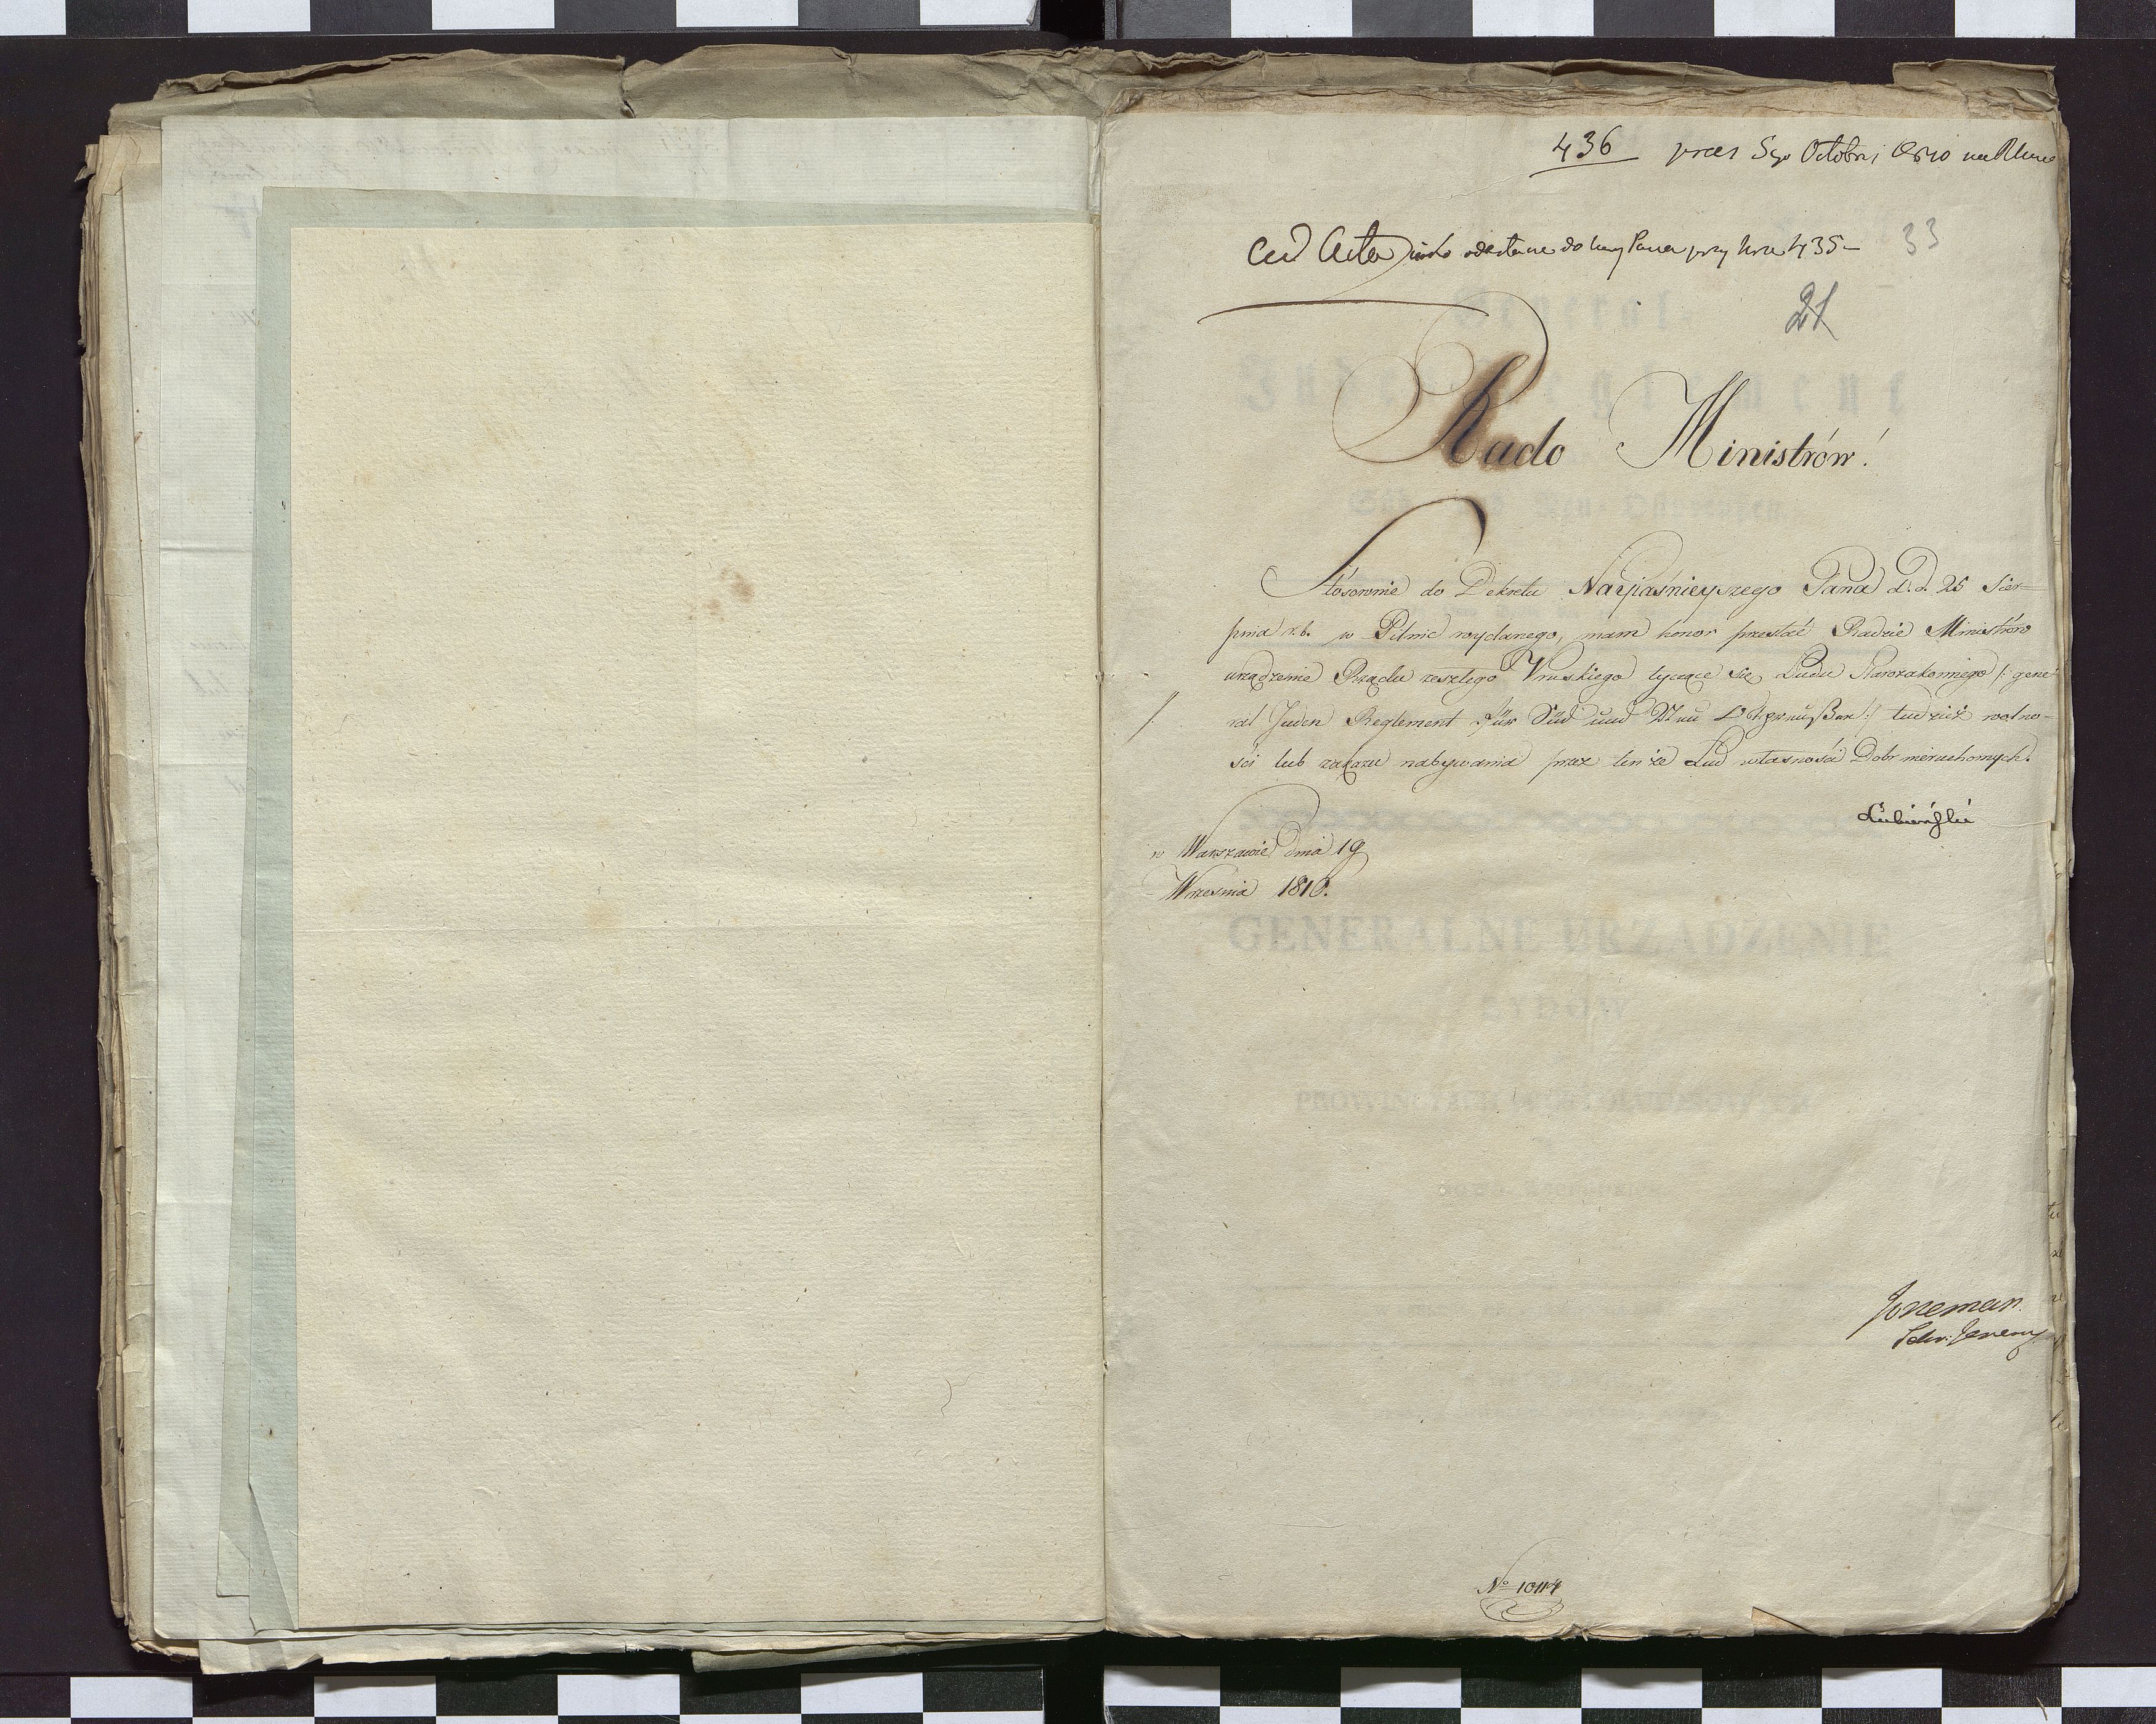 436 praes 5go Octobris
Ad Acta odesłane do Nay Pana przy Nrze 435 –
33
21
Rado Ministrów!
Stósownie do Dekretu Nayjaśnieyszego Pana d. d. 25 Sier-
pnia r.b. w Pilnic wydanego, mam honor przesłać Radzie Ministrów
urządzenie Rządu zeszłego Pruskiego tyczące się Ludu Starozakonnego /: gene-
ral Juden Reglement für Süd und Neu Ostpreußen :/ tudzież wolno-
ści lub zakazu nabywania przez tenże Lud własności Dobr nieruchomych.
Łubieński
w Warszawie dnia 19
Września 1810.
GENERALNE URZĄDZENIE
ŻYDOW
Joneman
Sekr: Jeneny
No 10114